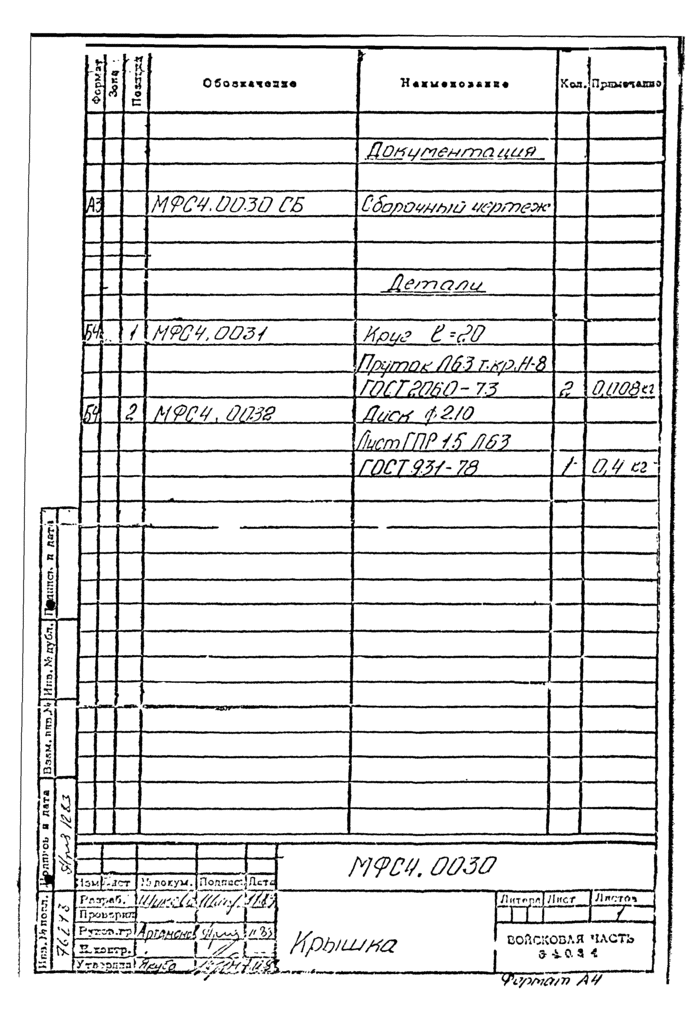 Формат Зона Позиция Обозначение Наименование Кол. Примечание
Документация
А3 МФС4.0030 СБ Сборочный чертеж
Детали
Б4 1 МФС4.0031 Круг ℓ=20
Пруток Л63 т.кр.Н-8
ГОСТ 2060-73 2 0,008кг
Б4 2 МФС4.0032 Диск ϕ210
Лист ГПР 1.5 Л63
ГОСТ 931-78 1 0,4 кг
Подпись и дата
Инв. № дубл.
Взам. инв. №
Подпись и дата
Инв. № подл.
МФС4.0030
Изм Лист № докум. Подпись Дата
Разраб.
Проверил
Руков.гр
Н.контр.
Утвердил
Крышка
Литера Лист Листов
1
ВОЙСКОВАЯ ЧАСТЬ
Формат А4